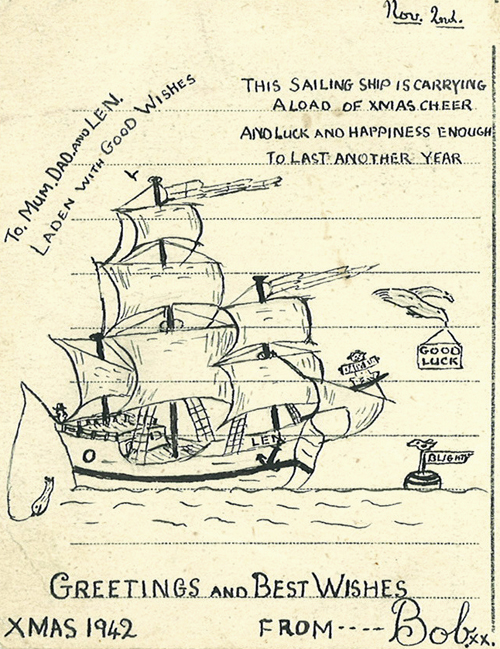 Nov. 2nd.
THIS SAILING SHIP IS CARRYING
A LOAD OF XMAS CHEER
AND LUCK AND HAPPINESS ENOUGH
TO LAST ANOTHER YEAR
To, MUM. DAD. AND LEN.
LADEN WITH GOOD WISHES
GOOD
LUCK
LEN
BLIGHTY
GREETINGS AND BEST WISHES
XMAS 1942 FROM---- Bob.xx.